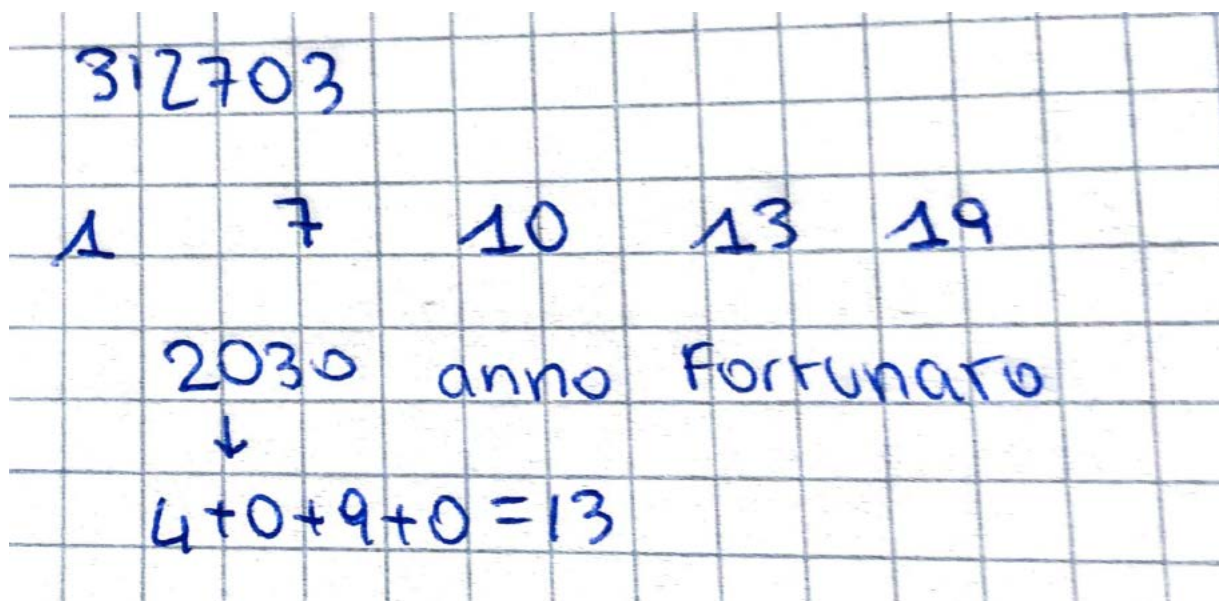 312703
1 7 10 13 19
2030 anno Fortunato
↓
4+0+9+0=13